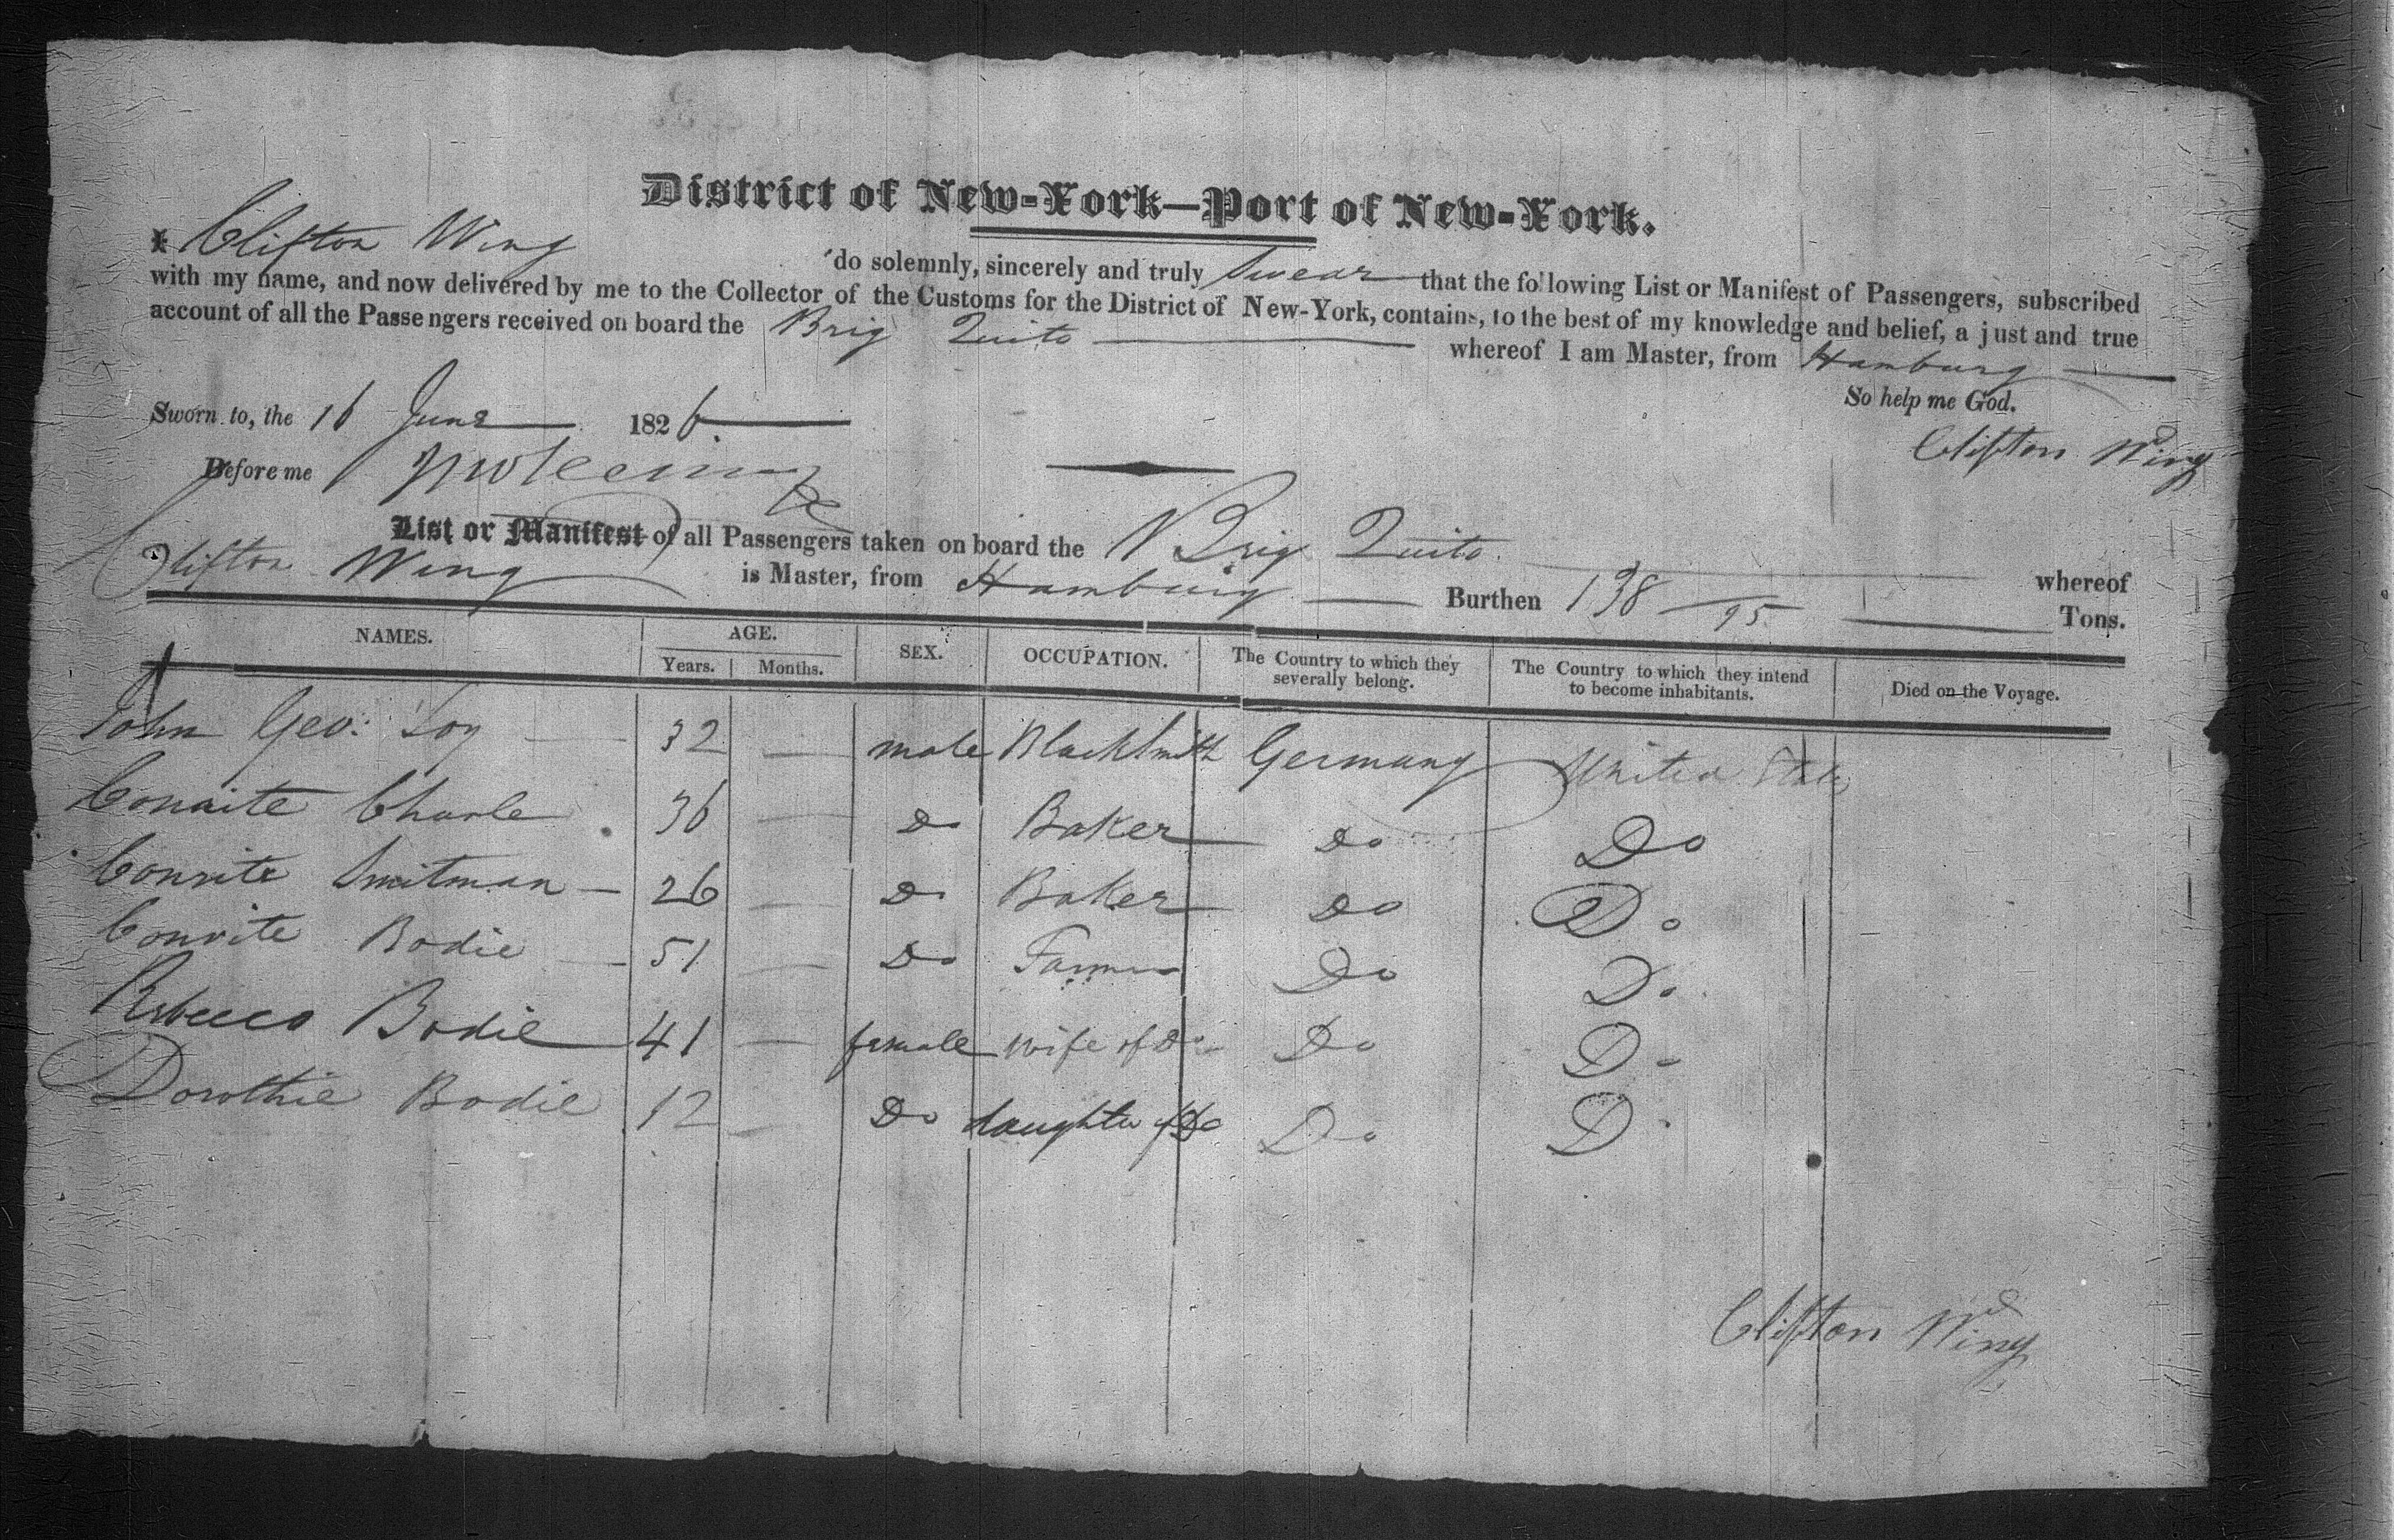 District of New-York—Port of New-York.
I Clifton Wing do solemnly, sincerely and truly Swear that the following List or Manifest of Passengers, subscribed
with my name, and now delivered by me to the Collector of the Customs for the District of New-York, contains, to the best of my knowledge and belief, a just and true
account of all the Passengers received on board the Brig Quito whereof I am Master, from Hamburg
So help me God.
Sworn to, the 16 June 1826.
Clifton Wing
Before me
List or Manifest of all Passengers taken on board the Brig Quito whereof
Clifton Wing is Master, from Hamburg Burthen 138 95 Tons.
NAMES. AGE. Years. Months. SEX. OCCUPATION. The Country to which they severally belong. The Country to which they intend to become inhabitants. Died on the Voyage.
John Geo: Loy 32 — male BlackSmith Germany United States
Conrite Charle 36 — Do Baker Do Do
Conrite Smitman 26 — Do Baker Do Do
Conrite Bodie 51 — Do Farmer Do Do
Rebecca Bodie 41 — female wife of Do Do Do
Dorothie Bodie 12 — Do daughter of Do Do Do
Clifton Wing